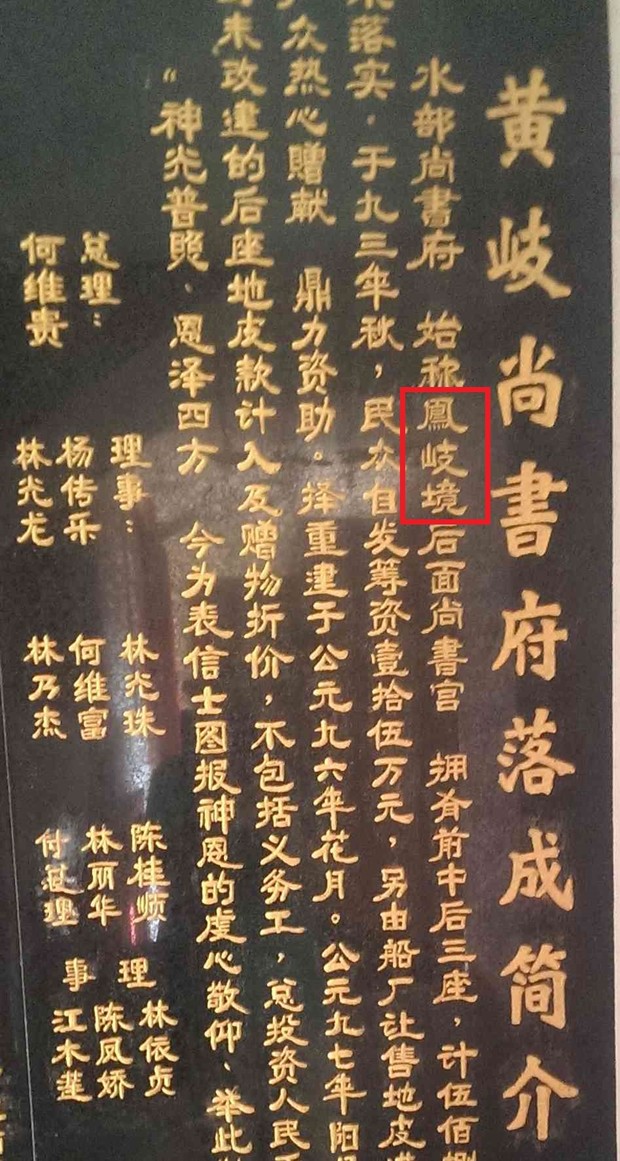 黄岐尚書府落成简介
水部尚書府 始称鳳岐境后面尚書宫 拥有前中后三座，计伍佰
落实．于九三年秋，民众自发筹资壹拾伍万元，另由船厂让售地皮
众热心赠献 鼎力资助。择重建于公元九六年花月。公元九七年阳
未改建的后座地皮款计入及赠物折价，不包括义务工，总投资人民
“神光普照、恩泽四方 今为表信士图报神恩的虔心敬仰、举此
总理：
何维贵
理事：
杨传乐
林光龙
林光珠
何维富
林乃杰
陈桂顺
林丽华
付总理
理事
林依贞
陈凤娇
江木莲